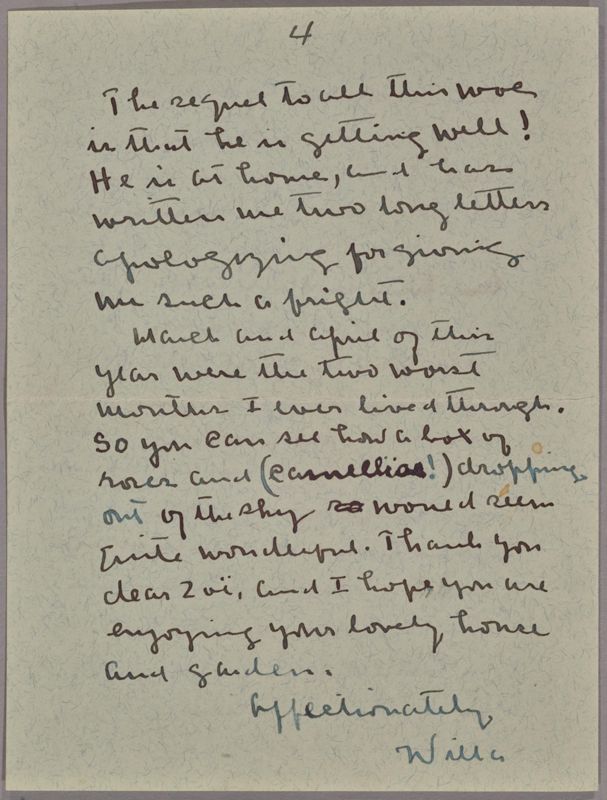 4
The sequel to all this woe
is that he is getting well!
He is at home, and has
written me two long letters
apologizing for giving
me such a fright.
March and April of this
year were the two worst
months I ever lived through.
So you can see how a box of
roses and (camellias!) dropping
out of the sky so would seem
quite wonderful. Thank you
dear Zoë, and I hope you are
enjoying your lovely house
and garden.
Affectionately
Willa